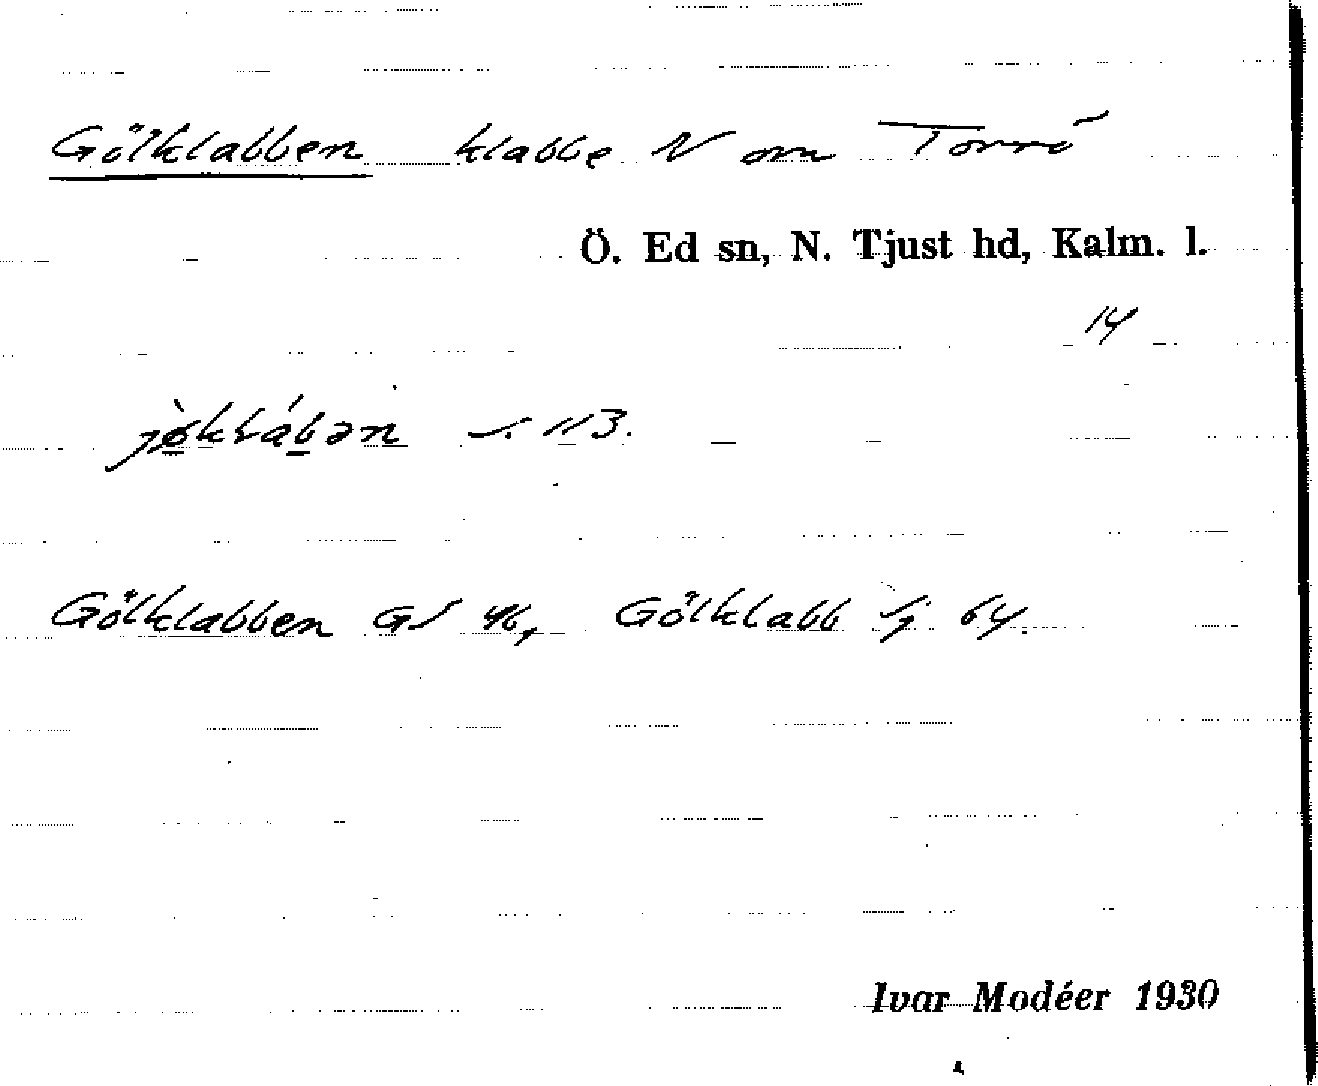 Gölklabben klabbe N om Torrö
Ö. Ed sn, N. Tjust hd, Kalm. l.
14
113.
Gölklabben GS 46, Gölklabb Sj 64.
Ivar Modéer 1930